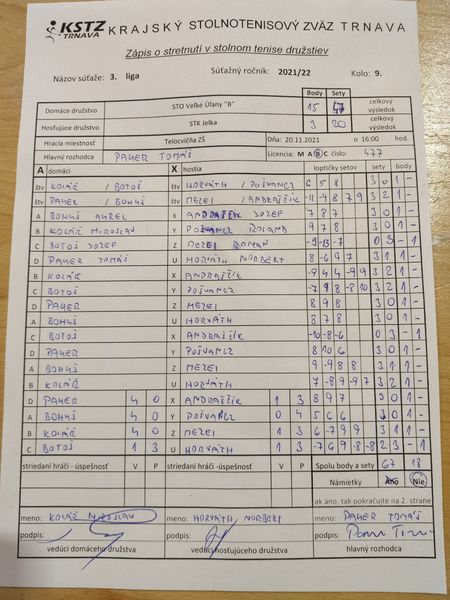 KSTZ TRNAVA KRAJSKÝ STOLNOTENISOVÝ ZVÄZ TRNAVA
Zápis o stretnutí v stolnom tenise družstiev
Názov súťaže: 3. liga Súťažný ročník: 2021/22 Kolo: 9.
Body Sety
Domáce družstvo STO Veľké Úľany "B" 15 celkový výsledok
Hosťujúce družstvo STK Jelka 3 20 celkový výsledok
Hracia miestnosť Telocvičňa ZŠ Dňa: 20.11.2021 o 16:00 hod.
Hlavný rozhodca PAHER TOMÁŠ Licencia: M A B C číslo: 477
A domáci X hostia loptičky setov sety body
štv KOLÁŘ / BOTOŠ štv HORVÁTH / POŠVANCZ 6 5 8 3 0 1 -
štv PAHER / BOHUŠ štv MEZEI / ANDRAŠČÍK -11 -4 8 7 9 3 2 1 -
A BOHUŠ AUREL X ANDRAŠČÍK JOZEF 7 8 7 3 0 1 -
B KOLÁŘ MIROSLAV Y POŠVANCZ ROLAND 9 7 8 3 0 1 -
C BOTOŠ JOZEF Z MEZEI ROMAN -9 -13 -7 0 3 - 1
D PAHER TOMÁŠ U HORVÁTH NORBERT 8 -6 9 7 3 1 1 -
B KOLÁŘ X ANDRAŠČÍK -9 4 4 -9 9 3 2 1 -
C BOTOŠ Y POŠVANCZ -7 9 8 -8 10 3 2 1 -
D PAHER Z MEZEI 8 9 8 3 0 1 -
A BOHUŠ U HORVÁTH 8 7 8 3 0 1 -
C BOTOŠ X ANDRAŠČÍK -10 -8 -6 0 3 - 1
D PAHER Y POŠVANCZ 8 10 6 3 0 1 -
A BOHUŠ Z MEZEI 9 -9 8 8 3 1 1 -
B KOLÁŘ U HORVÁTH 7 -8 9 -9 7 3 2 1 -
D PAHER 4 0 X ANDRAŠČÍK 1 3 8 9 7 3 0 1 -
A BOHUŠ 4 0 Y POŠVANCZ 0 4 5 6 6 3 0 1 -
B KOLÁŘ 4 0 Z MEZEI 1 3 6 -7 9 9 3 1 1 -
C BOTOŠ 1 3 U HORVÁTH 1 3 -7 6 9 -8 -8 2 3 - 1
striedaní hráči - úspešnosť V P striedaní hráči - úspešnosť V P Spolu body a sety 67 18
Námietky Áno Nie
ak áno, tak pokračujte na 2. strane
meno: KOLÁŘ MIROSLAV meno: HORVÁTH NORBERT meno: PAHER TOMÁŠ
podpis: podpis: podpis:
vedúci domáceho družstva vedúci hosťujúceho družstva hlavný rozhodca